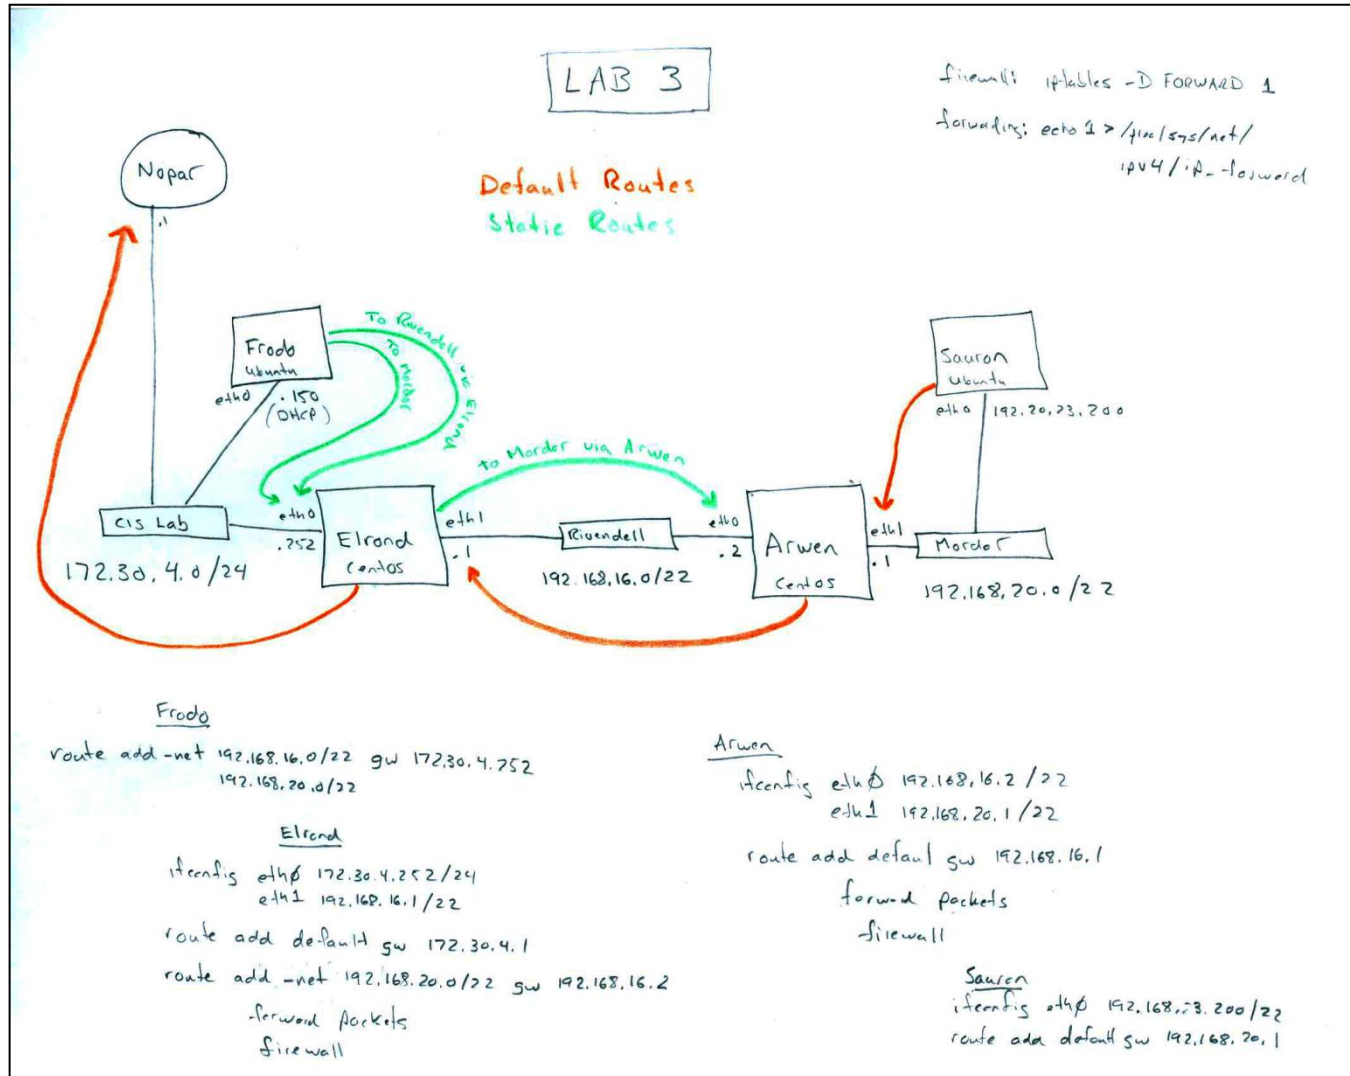 LAB 3
firewall: iptables -D FORWARD 1
forwarding: echo 1 > /proc/sys/net/
ipv4/ip_forward
Default Routes
Static Routes
Nopar
.1
Frodo
Ubuntu
eth0
.150
(DHCP)
To Rivendell via Elrond
To Mordor
Sauron
Ubuntu
eth0
192.20.23.200
CIS Lab
172.30.4.0/24
eth0
.252
Elrond
CentOS
eth1
.1
to Mordor via Arwen
Rivendell
192.168.16.0/22
eth0
.2
Arwen
CentOS
eth1
.1
Mordor
192.168.20.0/22
Frodo
route add -net 192.168.16.0/22 gw 172.30.4.252
192.168.20.0/22
Elrond
ifconfig eth0 172.30.4.252/24
eth1 192.168.16.1/22
route add default gw 172.30.4.1
route add -net 192.168.20.0/22 gw 192.168.16.2
forward packets
firewall
Arwen
ifconfig eth0 192.168.16.2/22
eth1 192.168.20.1/22
route add defaul gw 192.168.16.1
forward packets
firewall
Sauron
ifconfig eth0 192.168.23.200/22
route add default gw 192.168.20.1